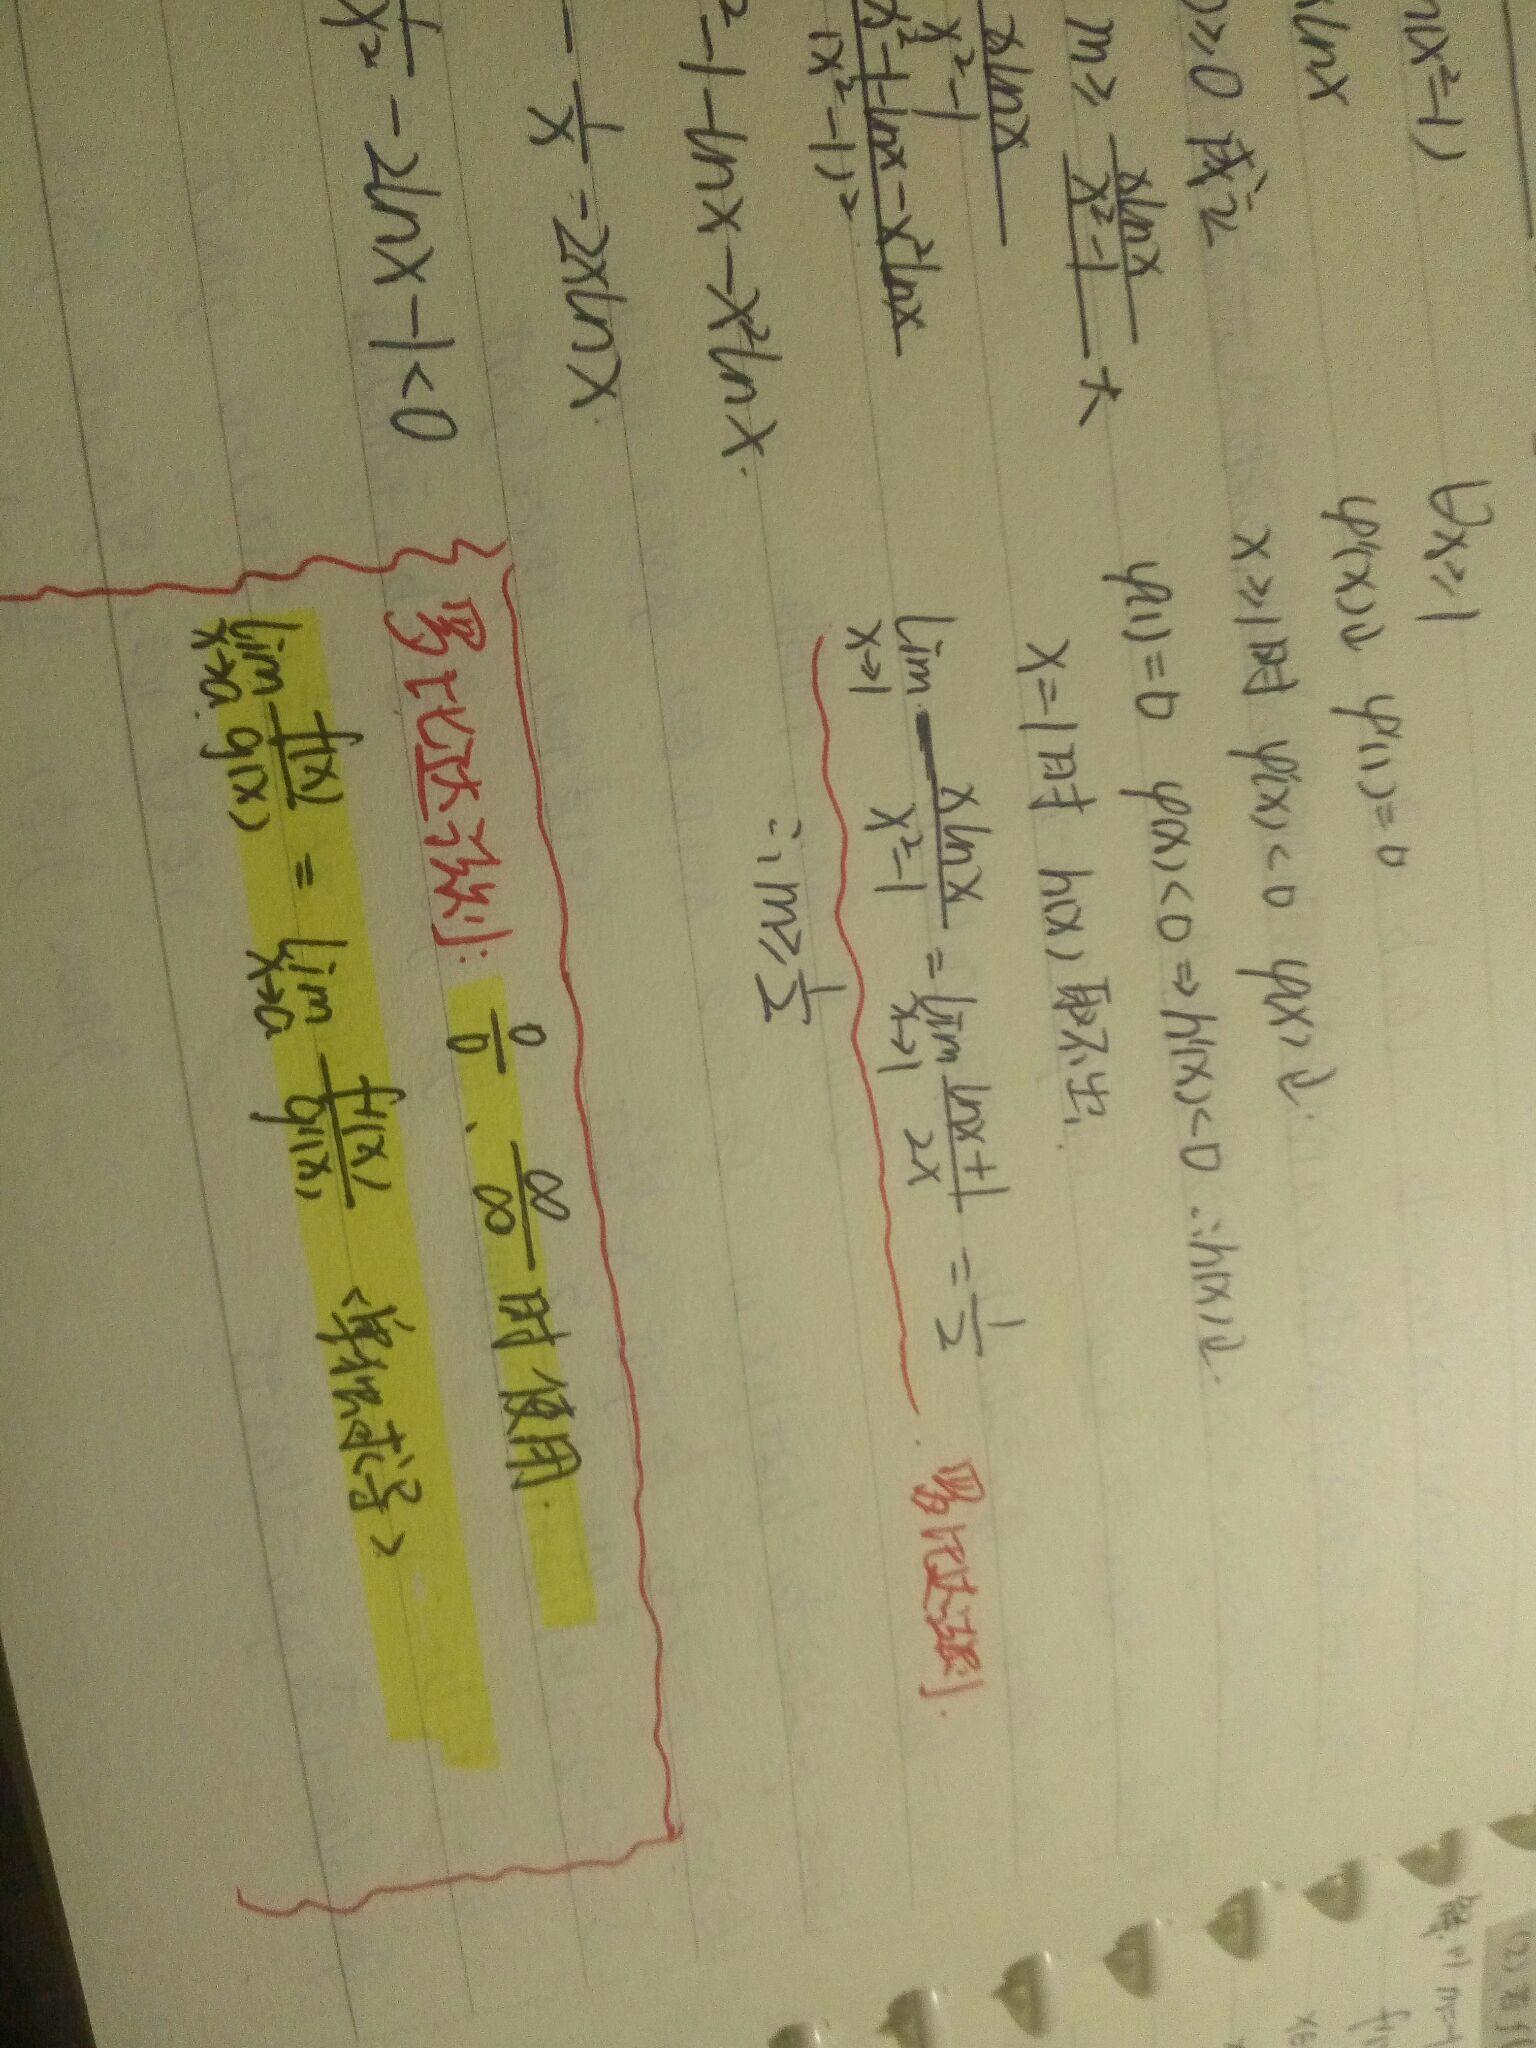 m(x²-1)
xlnx
≥0 成立
m ≥ xlnx / x²-1
xlnx / x²-1
x²-1-lnx-x²lnx / (x²-1)²
²-1-lnx-x²lnx.
- 1/x = 2xlnx.
1/x² - 2lnx-1<0
∀x≥1
φ'(x)↓ φ'(1)=0
x≥1时 φ'(x)<0 φ(x)↓.
φ(1)=0 φ(x)<0 ⇒ h'(x)<0 ∴h(x)↓.
x=1时 h(x)取不出.
lim x→1 xlnx / x²-1 = lim x→1 lnx+1 / 2x = 1/2
罗比达法则.
∴m≥1/2
罗比达法则: 0/0 、 ∞/∞ 时使用.
lim x→a f(x)/g(x) = lim x→a f'(x)/g'(x) <导完再算>
(2) 若f(
解:(1) m=1